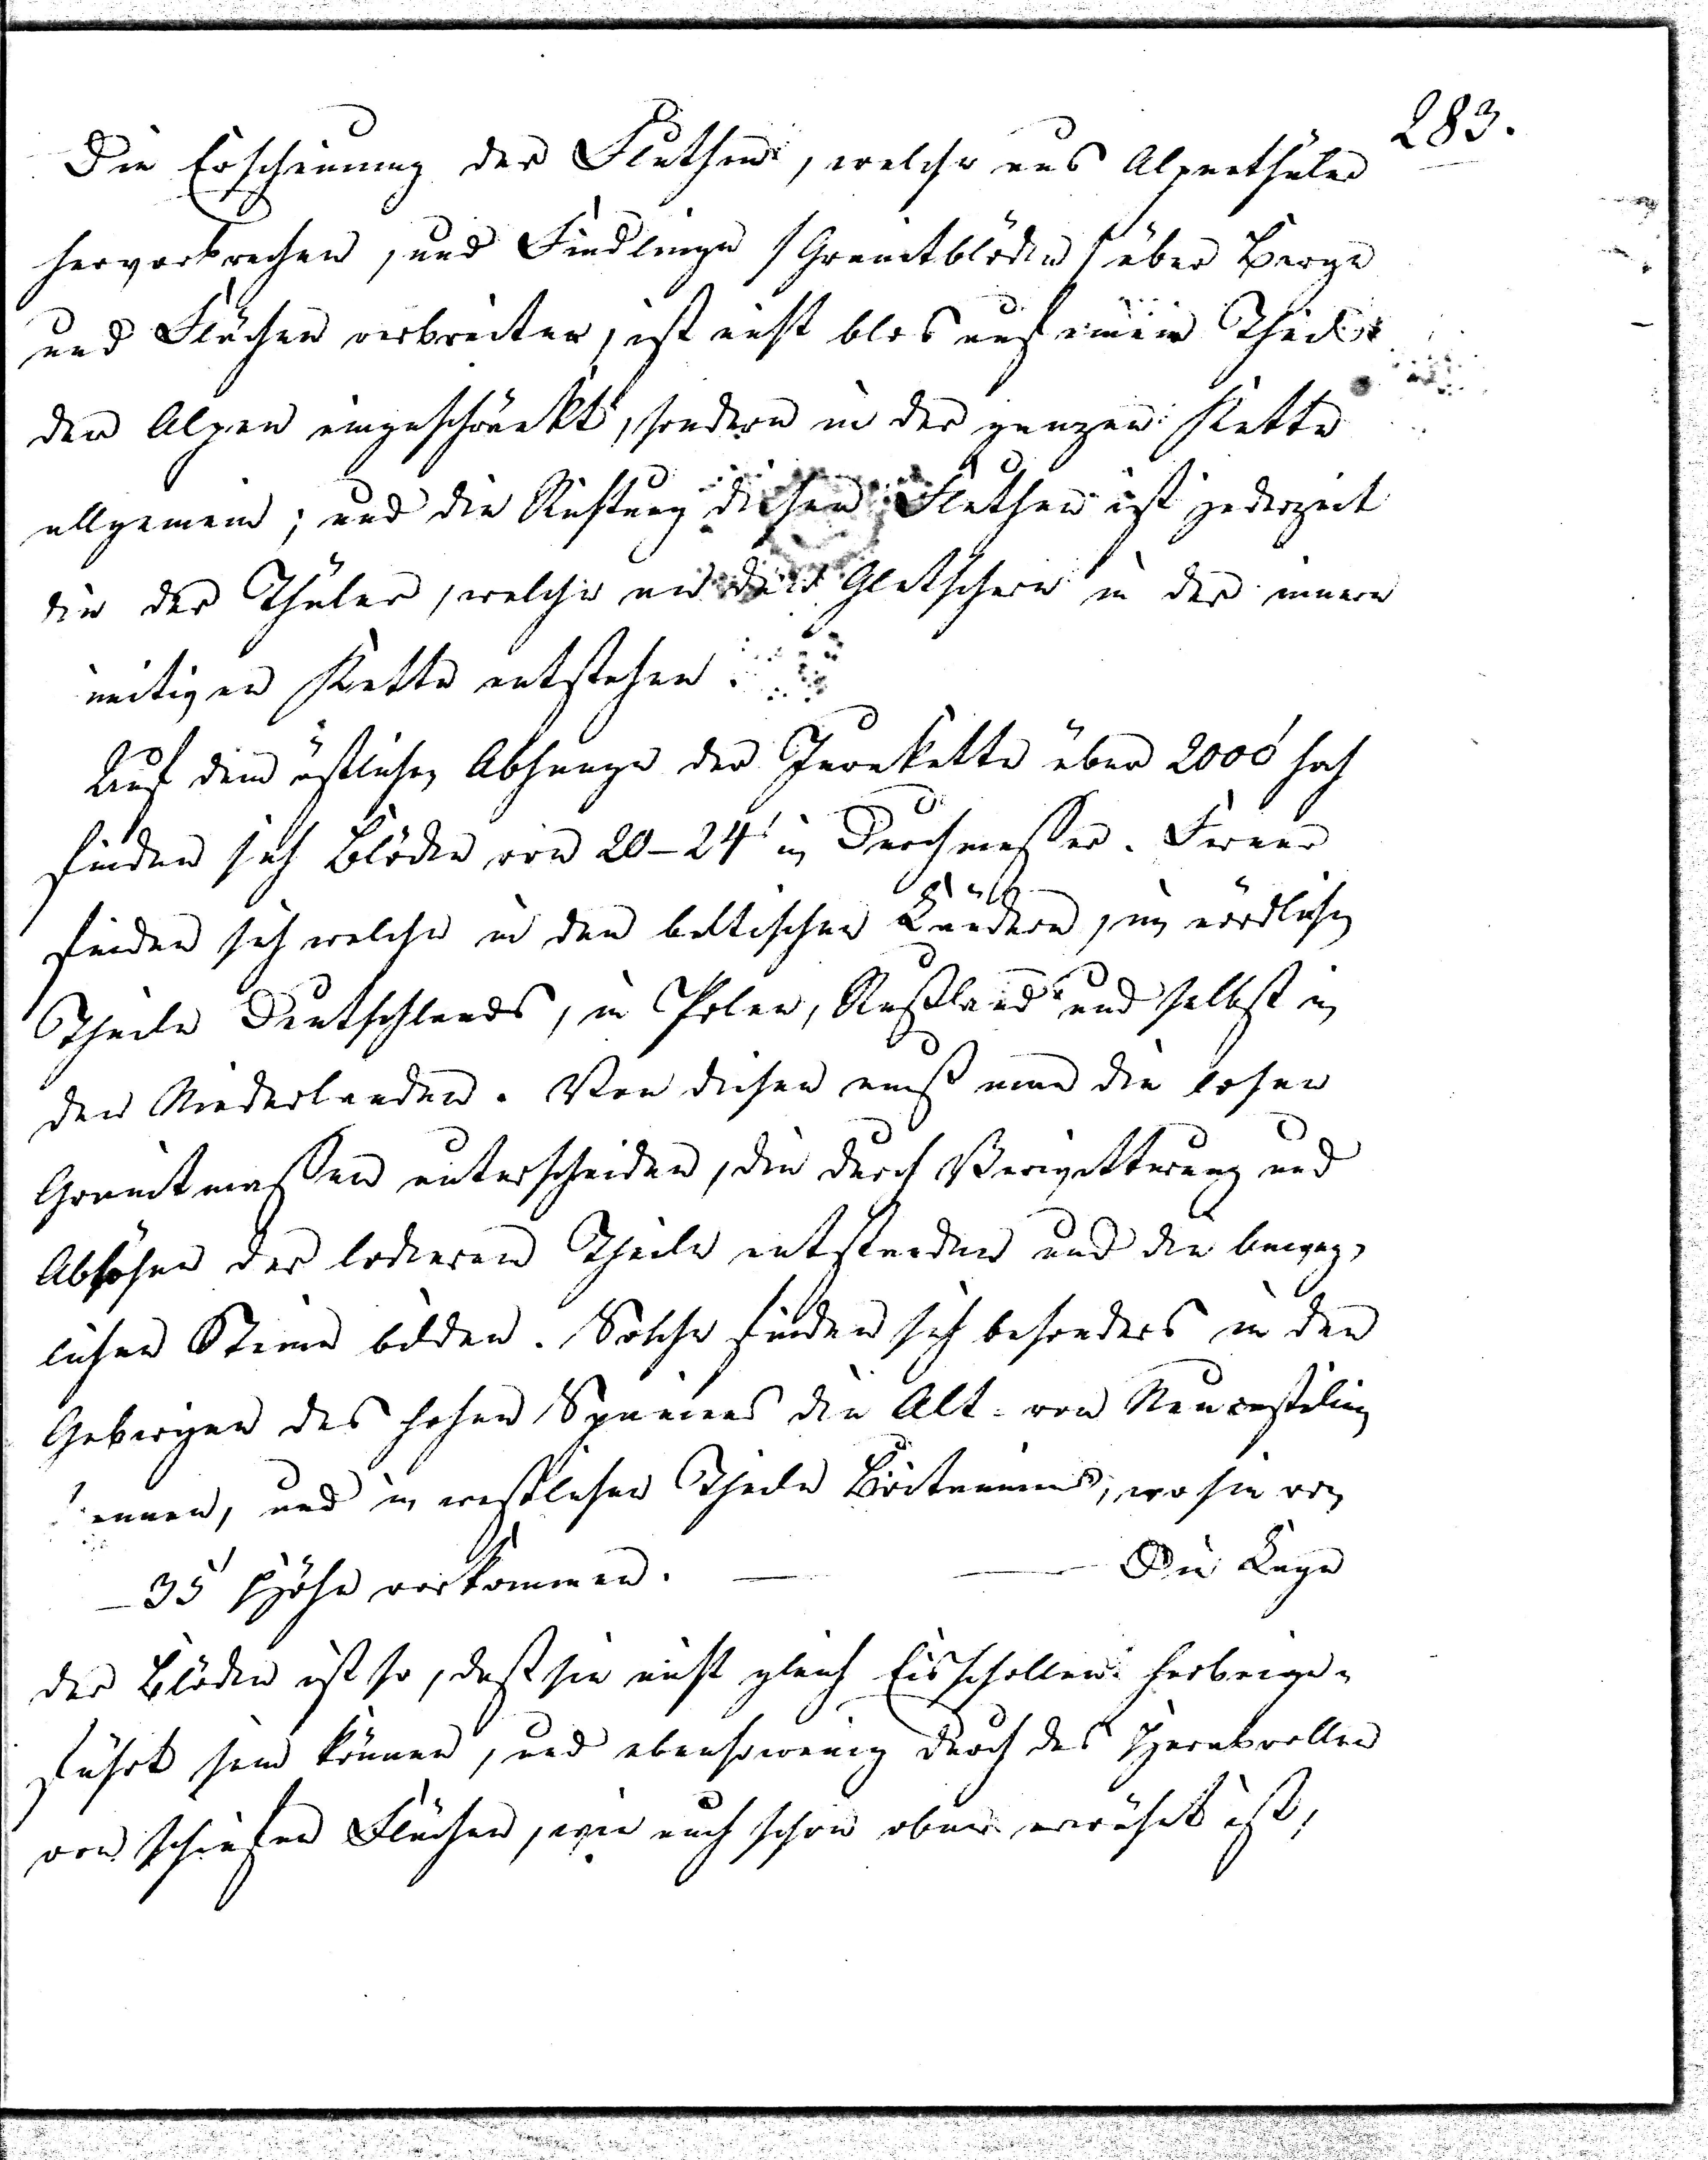 283.
Die Erscheinung der Fluthen, welche aus Alpenthäler
hervorbrechen, und Findlinge /Granitblöcke/ über Berge
und Flächen verbreiten, ist nicht blos auf einen Theil
der Alpen eingeschränkt, sondern in der ganzen Kette
allgemein; und die Richtung dieser Fluthen ist jederzeit
die der Thäler, welche an den Gletschern in der innern
Kette entstehen.
Auf dem östlichen Abhange der Jurakette über 2000' hoch
finden sich Blöcke von 20–24' im Durchmesser. Ferner
finden sich welche in den baltischen Ländern, im nördlichen
Theile Deutschlands, in Polen, Rußland und selbst in
den Niederlanden. Von diesen muß man die losen
Granitmassen unterscheiden, die durch Verwitterung und
der lockeren Theile entstanden und die beweg-
lichen Steine bilden. Solche finden sich besonders in den
Gebirgen des hohen Spaniens die Alt- von Neucastilien
trennen, und im westlichen Theile Britanniens, wo sie von
–35' Höhe vorkommen. — — Die Lage
der Blöcke ist so, daß sie nicht gleich Eisschollen herbeige-
führt sein können, und ebensowenig durch das Herabrollen
von schiefen Flächen, wie auch schon oben erwähnt ist,